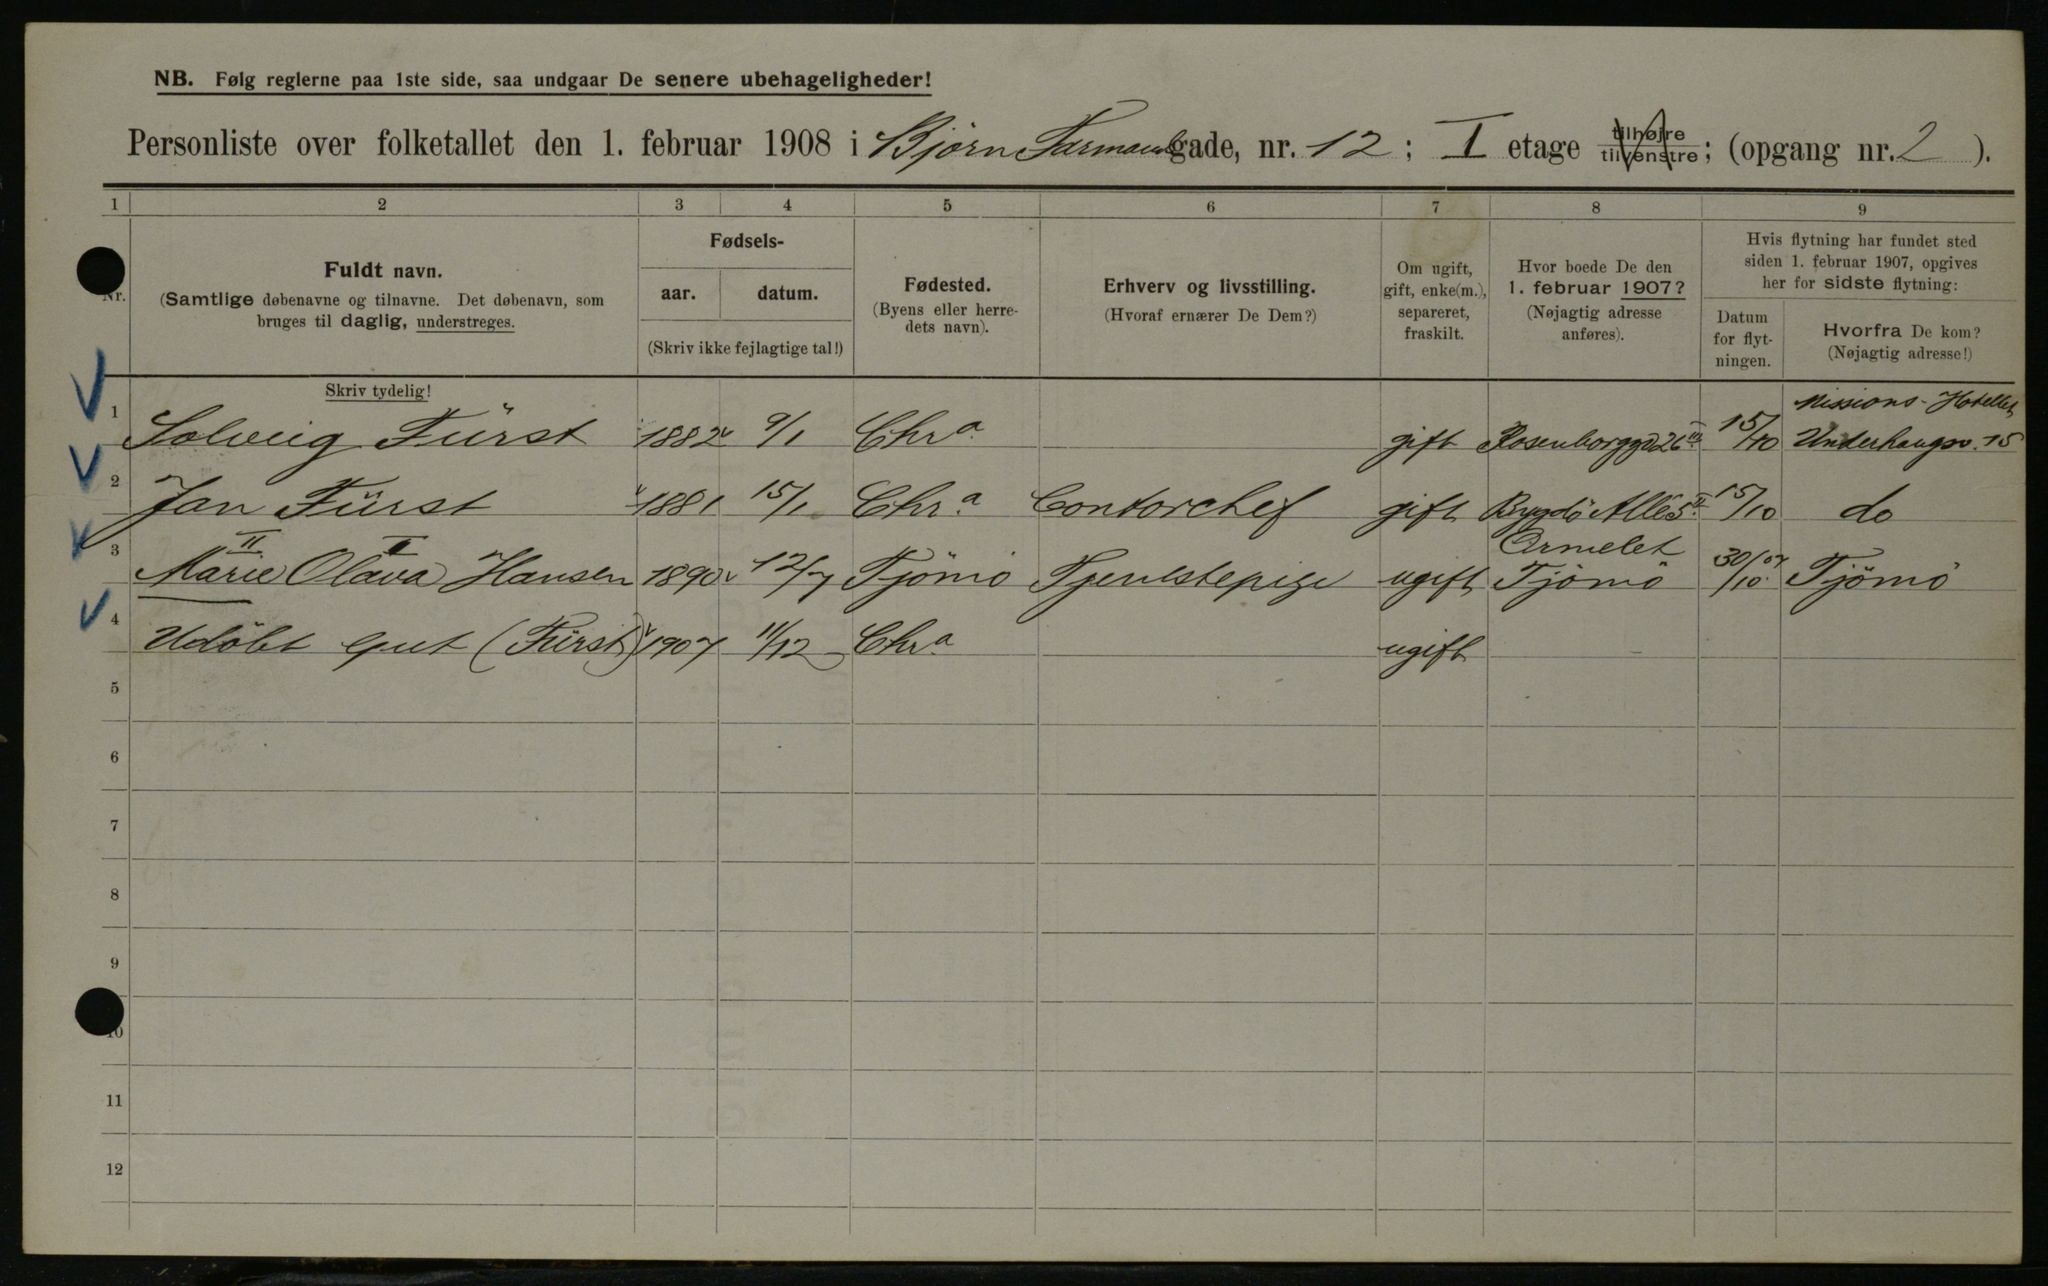 NB. Følg reglerne paa 1ste side, saa undgaar De senere ubehageligheder!
Personliste over folketallet den 1. februar 1908 i Bjørn Farmands gade, nr. 12; I etage tilhøjre tilvenstre; (opgang nr. 2).
1 2 3 4 5 6 7 8 9
Nr.
Fuldt navn.
(Samtlige døbenavne og tilnavne. Det døbenavn, som
bruges til daglig, understreges.
Skriv tydelig!
Fødsels-
aar. datum.
(Skriv ikke fejlagtige tal!)
Fødested.
(Byens eller herre-
dets navn).
Erhverv og livsstilling.
(Hvoraf ernærer De Dem?)
Om ugift,
gift, enke(m.),
separeret,
fraskilt.
Hvor boede De den
1. februar 1907?
(Nøjagtig adresse
anføres).
Hvis flytning har fundet sted
siden 1. februar 1907, opgives
her for sidste flytning:
Datum
for flyt-
ningen.
Hvorfra De kom?
(Nøjagtig adresse!)
Missions-Hotellet
1 Solveig Fürst 1882 9/1 Chra. gift Rosenborggd 26 III 15/10 Underhaugsv. 15
2 Jan Fürst 1881 15/1 Chr.a Contorchef gift Bygdö Allé 5 II. 15/10 do
II I Ormelet
3 Marie Olava Hansen 1890 12/7 Tjömö Tjenestepige ugift Tjömö 30/10 07. Tjömö
4 Udöbt Gut (Fürst) 1907 11/12 Chr.a ugift
5
6
7
8
9
10
11
12